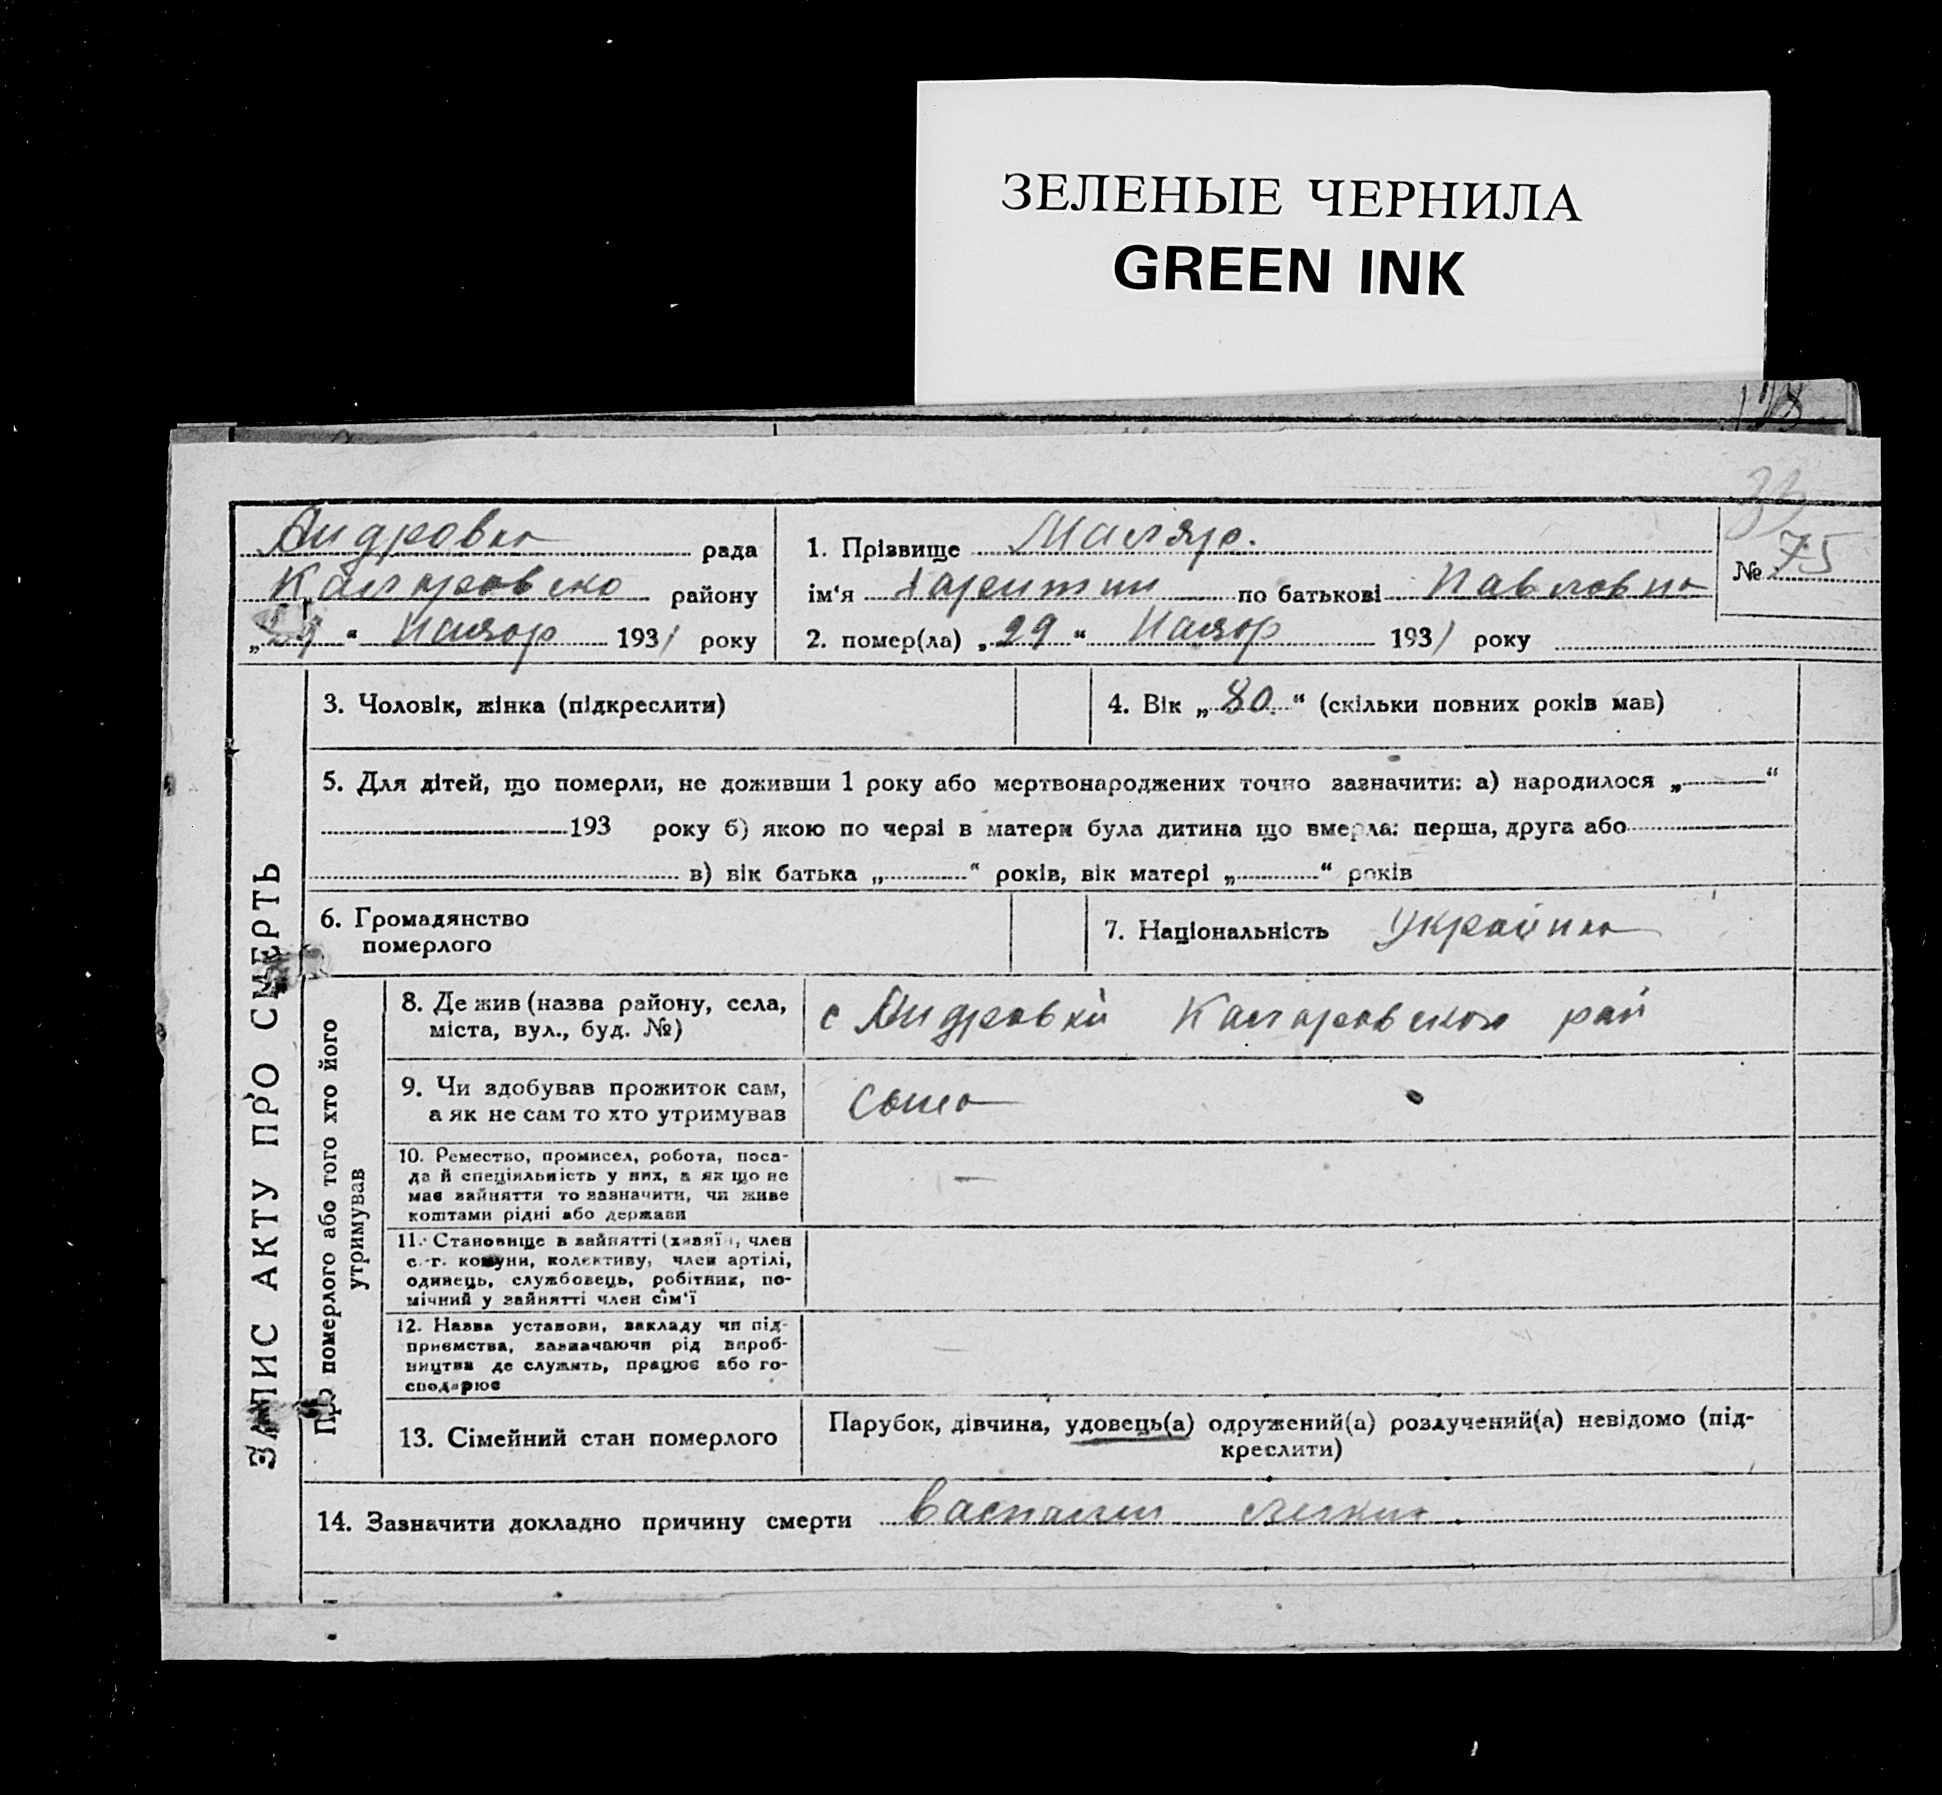 ЗЕЛЕНЫЕ ЧЕРНИЛА
GREEN INK
Андровка рада
району
„29“ 1931 року
1. Прізвище Маляр.
ім‘я по батькові Павловна
2. помер(ла) „29“ 1931 року
№ 75
ЗАПИС АКТУ ПРО СМЕРТЬ
3. Чоловік, жінка (підкреслити)
4. Вік „80“ (скільки повних років мав)
5. Для дітей, що померли, не доживши 1 року або мертвонароджених точно зазначити: а) народилося „ “
193 року б) якою по черзі в матери була дитина що вмерла: перша, друга або
в) вік батька „ “ років, вік матері „ “ років
6. Громадянство
померлого
7. Національність Українка
Про померлого або того хто його
утримував
8. Де жив (назва району, села,
міста, вул., буд. №)
с Андровка рай
9. Чи здобував прожиток сам,
а як не сам то хто утримував
10. Ремество, промисел, робота, поса-
да й спеціяльність у них, а як що не
має зайняття то зазначити, чи живе
коштами рідні або держави
—
11. Становище в зайнятті (хазяїн, член
с.-г. комуни, колективу, член артілі,
одинець, службовець, робітник, по-
мічний у зайнятті член сім‘ї
12. Назва установи, закладу чи під-
приємства, зазначаючи рід вироб-
ництва де служить, працює або го-
сподарює
13. Сімейний стан померлого
Парубок, дівчина, удовець(а) одружений(а) розлучений(а) невідомо (під-
креслити)
14. Зазначити докладно причину смерти